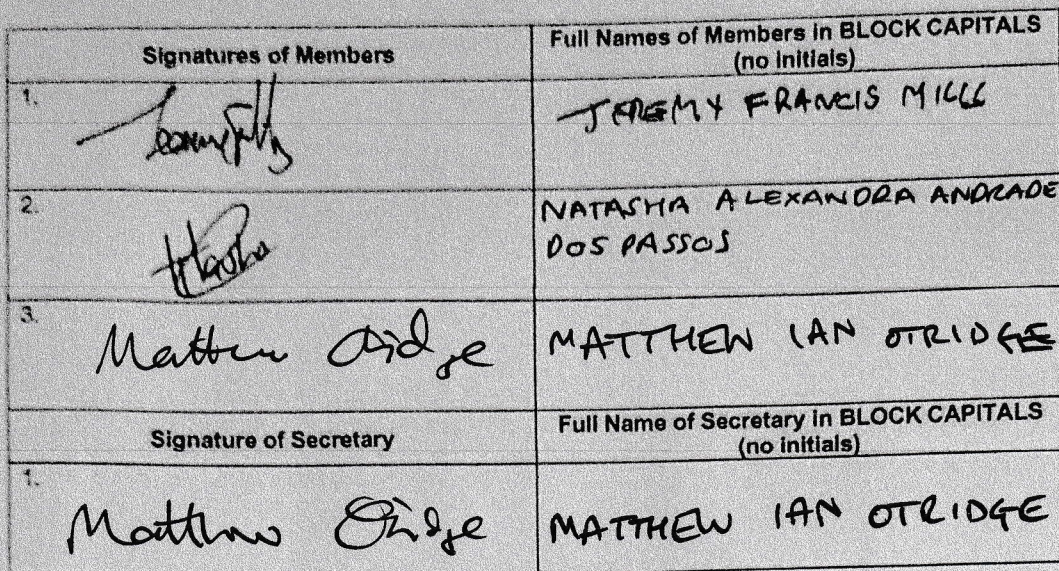 Signatures of Members
Full Names of Members in BLOCK CAPITALS
(no initials)
1.
JEREMY FRANCIS MILLS
2.
NATASHA ALEXANDRA ANDRADE
DOS PASSOS
3.
Matthew Otridge
MATTHEW IAN OTRIDGE
Signature of Secretary
Full Name of Secretary in BLOCK CAPITALS
(no initials)
1.
Matthew Otridge
MATTHEW IAN OTRIDGE